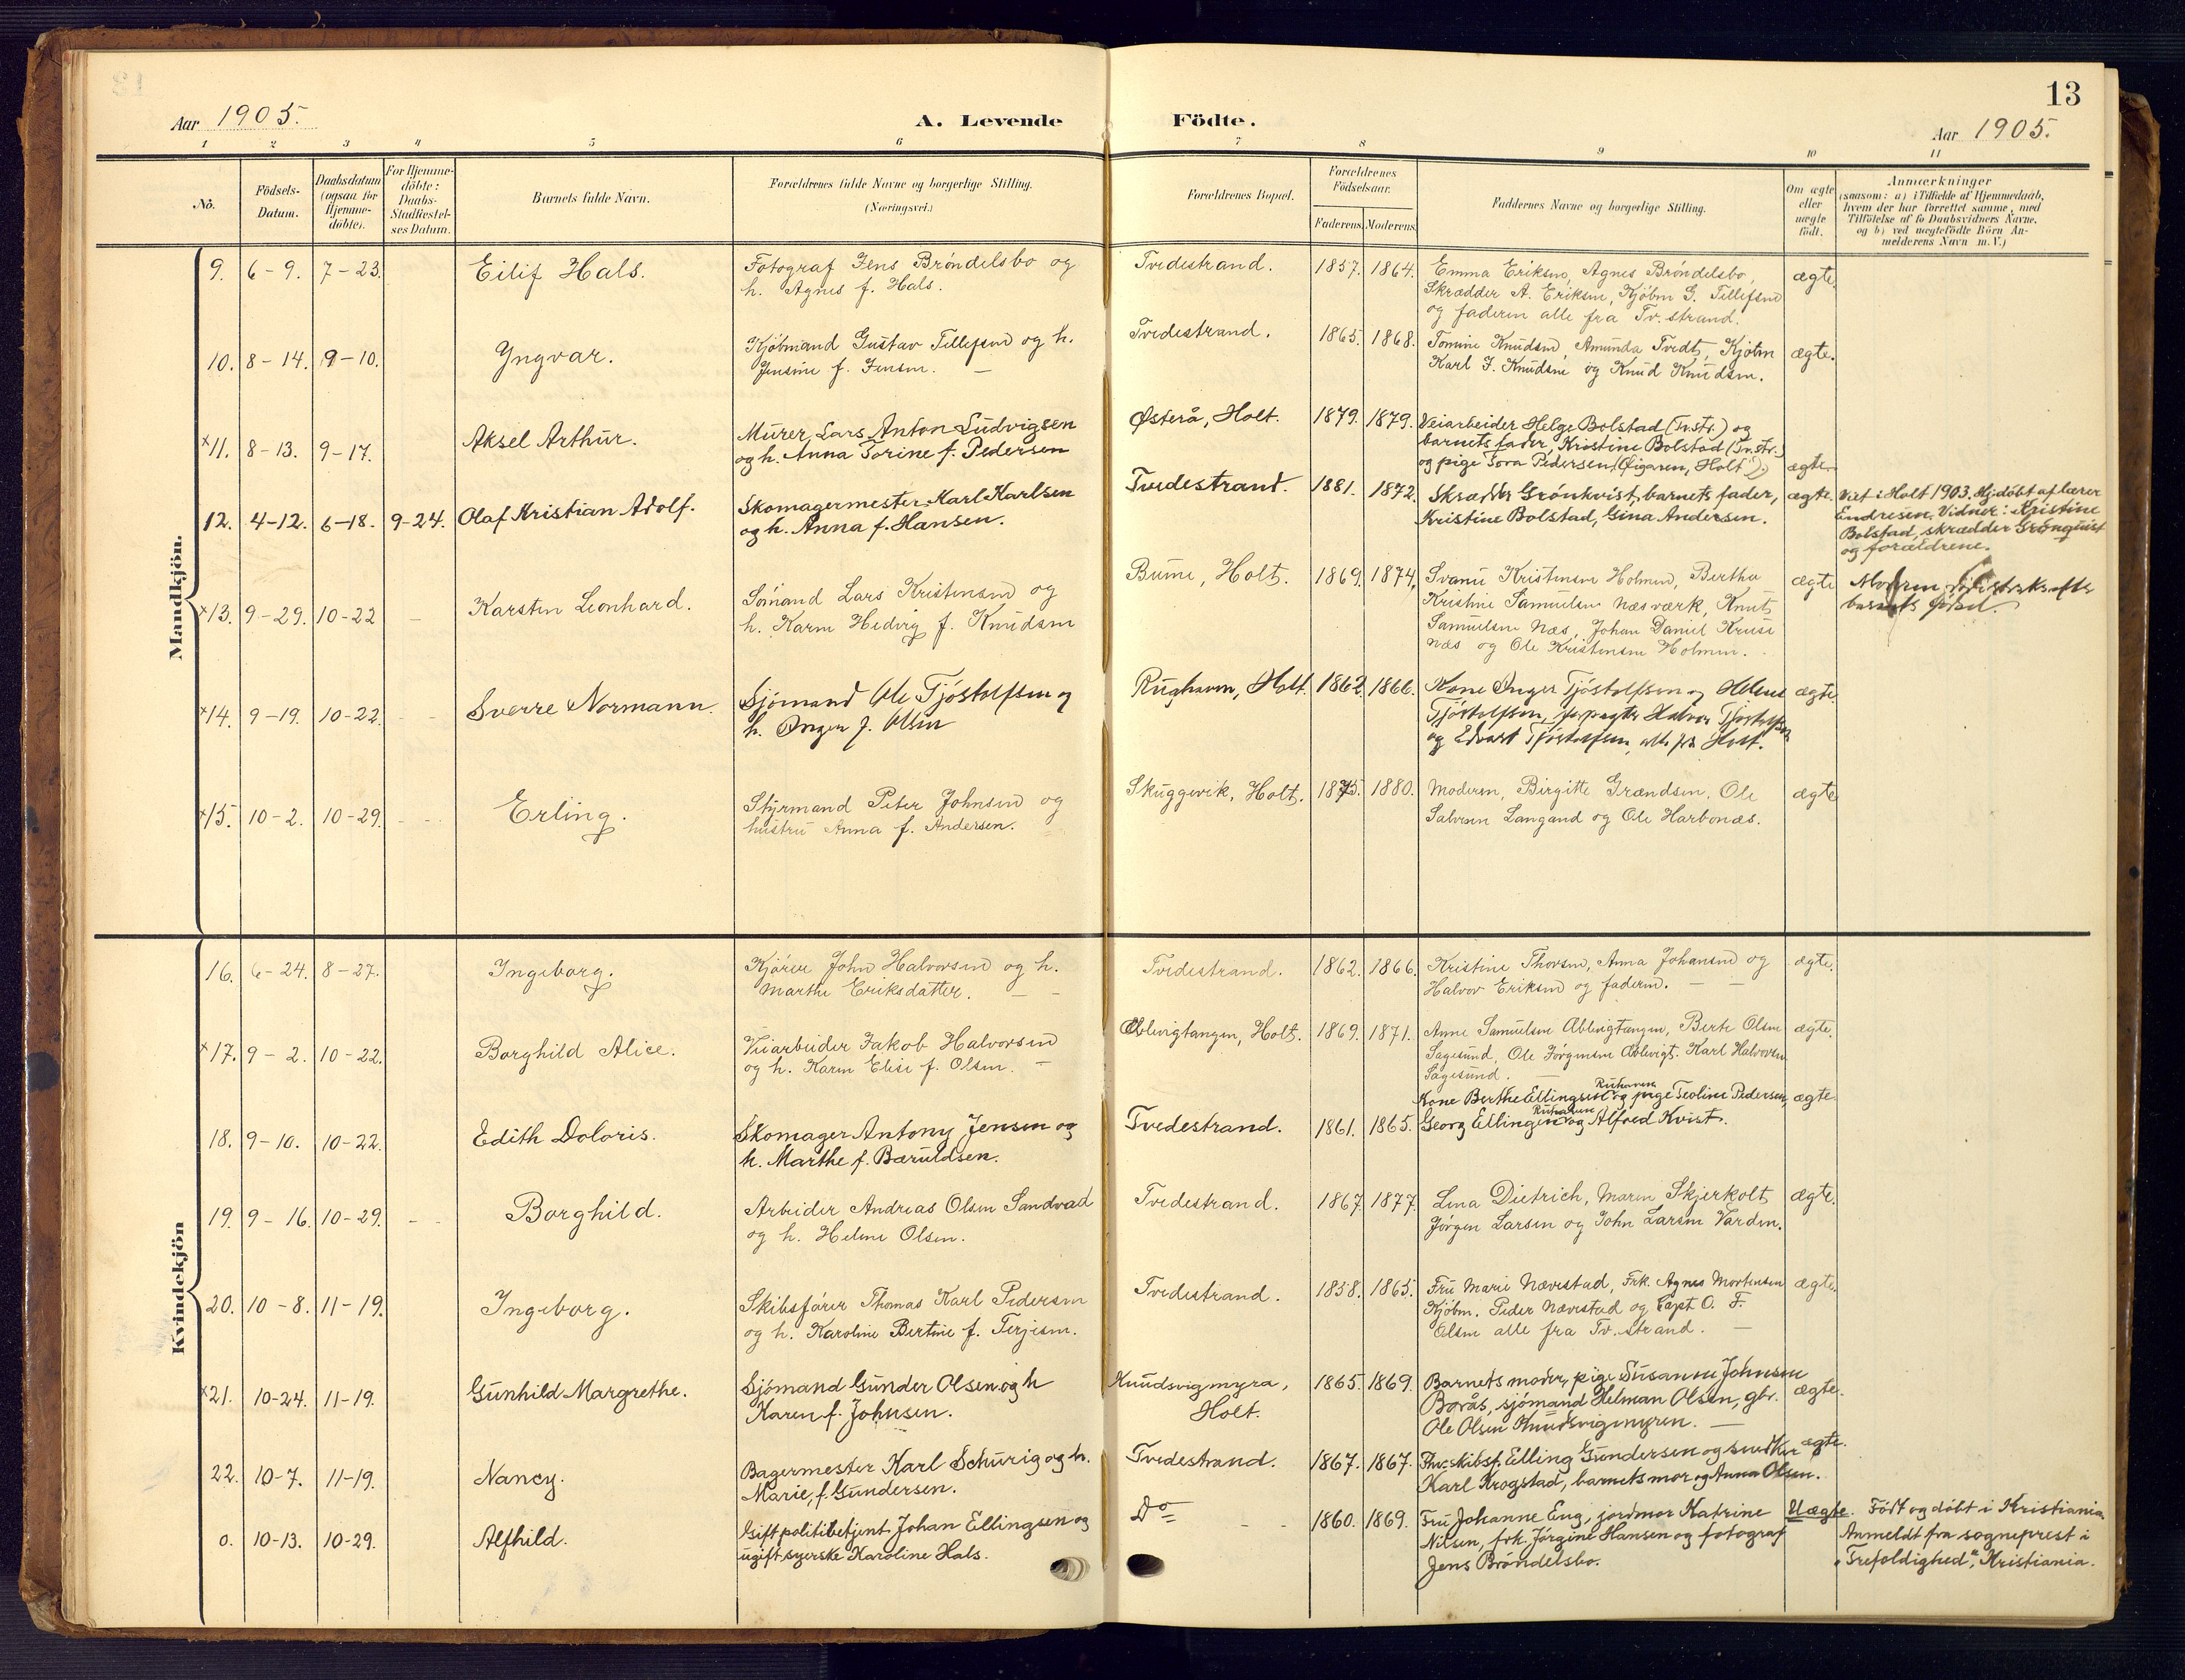 13
Aar 1905.
A. Levende Födte.
Aar 1905.
1 2 3 4 5 6 7 8 9 10 11
No.
Födsels-Datum.
Daabsdatum (ogsaa for Hjemme-döbte).
For Hjemme-döbte: Daabs-Stadfæstel-ses Datum.
Barnets fulde Navn.
Forældrenes fulde Navne og borgerlige Stilling.
(Næringsvei.)
Forældrenes Bopæl.
Forældrenes Födselsaar.
Faderens. Moderens.
Faddernes Navne og borgerlige Stilling.
Om ægte eller uægte födt.
Anmærkninger
(saasom: a) i Tilfælde af Hjemmedaab,
hvem der har forrettet samme, med
Tilföielse af to Daabsvidners Navne,
og b) ved uægtefödte Börn An-
melderens Navn m. V.)
Mandkjön.
9. 6-9. 7-23. Eilif Hals. Fotograf Jens Bröndelsbo og
h. Agnes f. Hals.
Tvedestrand. 1857. 1864. Emma Eriksen, Agnes Bröndelsbo,
Skrædder A. Eriksen, Kjöbm G. Tellefsen
og faderen alle fra Tv.strand.
ægte.
10. 8-14. 9-10. Yngvar. Kjöbmand Gustav Tellefsen og h.
Jensine f. Jensen. —
Tvedestrand. 1865. 1868. Tomine Knudsen, Amunda Tvedt, Kjöbm
Karl J. Knudsen og Knud Knudsen.
ægte.
x11. 8-13. 9-17. Aksel Arthur. Murer Lars Anton Ludvigsen
og h. Anna Torine f. Pedersen
Østerå, Holt. 1879. 1879. Veiarbeider Helge Bolstad (Tv.str.) og
barnets fader, Kristine Bolstad (Tv.str.)
og pige Tora Pedersen (Øigaren, Holt).
ægte.
12. 4-12. 6-18. 9-24. Olaf Kristian Adolf. Skomagermester Karl Karlsen
og h. Anna f. Hansen.
Tvedestrand. 1881. 1872. Skrædder Grönkvist, barnets fader,
Kristine Bolstad, Gina Andersen.
ægte. Viet i Holt 1903. Hj.döbt af lærer
Endresen. Vidner: Kristine
Bolstad, skrædder Grönquist
og forældrene.
x13. 9-29. 10-22 Karsten Leonhard. Sömand Lars Kristensen og
h. Karen Hedvig f. Knudsen
Bume, Holt. 1869. 1874. Svanu Kristensen Holmen, Bertha
Kristine Samuelsen Næsværk, Knut
Samuelsen Næs, Johan Daniel Kruse
Næs og Ole Kristensen Holmen.
ægte Moderen döde straks efter
barnets födsel.
x14. 9-19. 10-22. Sverre Normann. Sjömand Ole Tjöstolfsen og
h. Inger f. Olsen
Rughaven, Holt. 1862. 1866. Kone Inger Tjöstolfsen og Helene
Tjöstolfsen, forpagter Halvor Tjöstolfsen
og Edvart Tjöstolfsen, alle fra Holt.
ægte.
x15. 10-2. 10-29. Erling. Styrmand Peter Johnsen og
hustru Anna f. Andersen.
Skuggevik, Holt. 1875. 1880. Moderen, Birgitte Grændsen, Ole
Salvesen Langand og Ole Harbonæs.
ægte
Kvindekjön
16. 6-24. 8-27. Ingeborg. Kjörer John Halvorsen og h.
Marthe Eriksdatter. — —
Tvedestrand. 1862. 1866. Kristine Thorsen, Anna Johansen og
Halvor Eriksen og faderen. — —
ægte.
x17. 9-2. 10-22. Borghild Alice. Veiarbeider Jakob Halvorsen
og h. Karen Elise f. Olsen. —
Ablevigtangen, Holt. 1869. 1871. Anne Samuelsen Ablevigtangen, Berte Olsen
Sagesund, Ole Jörgensen Ablevigt. Karl Halvorsen
Sagesund. —
ægte.
18. 9-10. 10-22. Edith Doloris. Skomager Antony Jensen og
h. Marthe f. Baruldsen.
Tvedestrand. 1861. 1865. Kone Berthe Ellingsen Ruhaven og pige Teoline Pedersen,
Georg Ellingsen Ruhaven og Alfred Kvist.
ægte
19. 9-16. 10-29. Borghild. Arbeider Andreas Olsen Sandvad
og h. Helene Olsen.
Tvedestrand. 1867. 1877. Lena Dietrich, Maren Skjerkolt
Jörgen Larsen og John Larsen Varden.
ægte.
20. 10-8. 11-19. Ingeborg. Skibsförer Thomas Karl Pedersen
og h. Karoline Bertine f. Terjesen.
Tvedestrand. 1858. 1865. Fru Marie Nævestad, Frk. Agnes Mortensen
Kjöbm. Peder Nævestad og Capt O. F.
Olsen alle fra Tv.strand. —
ægte.
x21. 10-24. 11-19. Gunhild Margrethe. Sjömand Gunder Olsen og h
Karen f. Johnsen.
Knudsvigmyra,
Holt.
1865. 1869. Barnets moder, pige Susanne Johnsen
Borås, sjömand Helman Olsen, gbr.
Ole Olsen Knudsvigmyren. —
ægte.
22. 10-7. 11-19. Nancy. Bagermester Karl Schurig og h.
Marie, f. Gundersen.
Tvedestrand. 1867. 1867. Fhv. skibsf. Elling Gundersen og snedker
Karl Krogstad, barnets mor og Anna Olsen.
ægte.
0. 10-13. 10-29. Alfhild. Gift politibetjent Johan Ellingsen og
ugift syerske Karoline Hals.
Do 1860. 1869. Fru Johanne Eng, jordmor Katrine
Nilsen, frk. Jörgine Hansen og fotograf
Jens Bröndelsbo.
Uægte. Födt og döbt i Kristiania.
Anmeldt fra sogneprest i
„Trefoldighed", Kristiania.